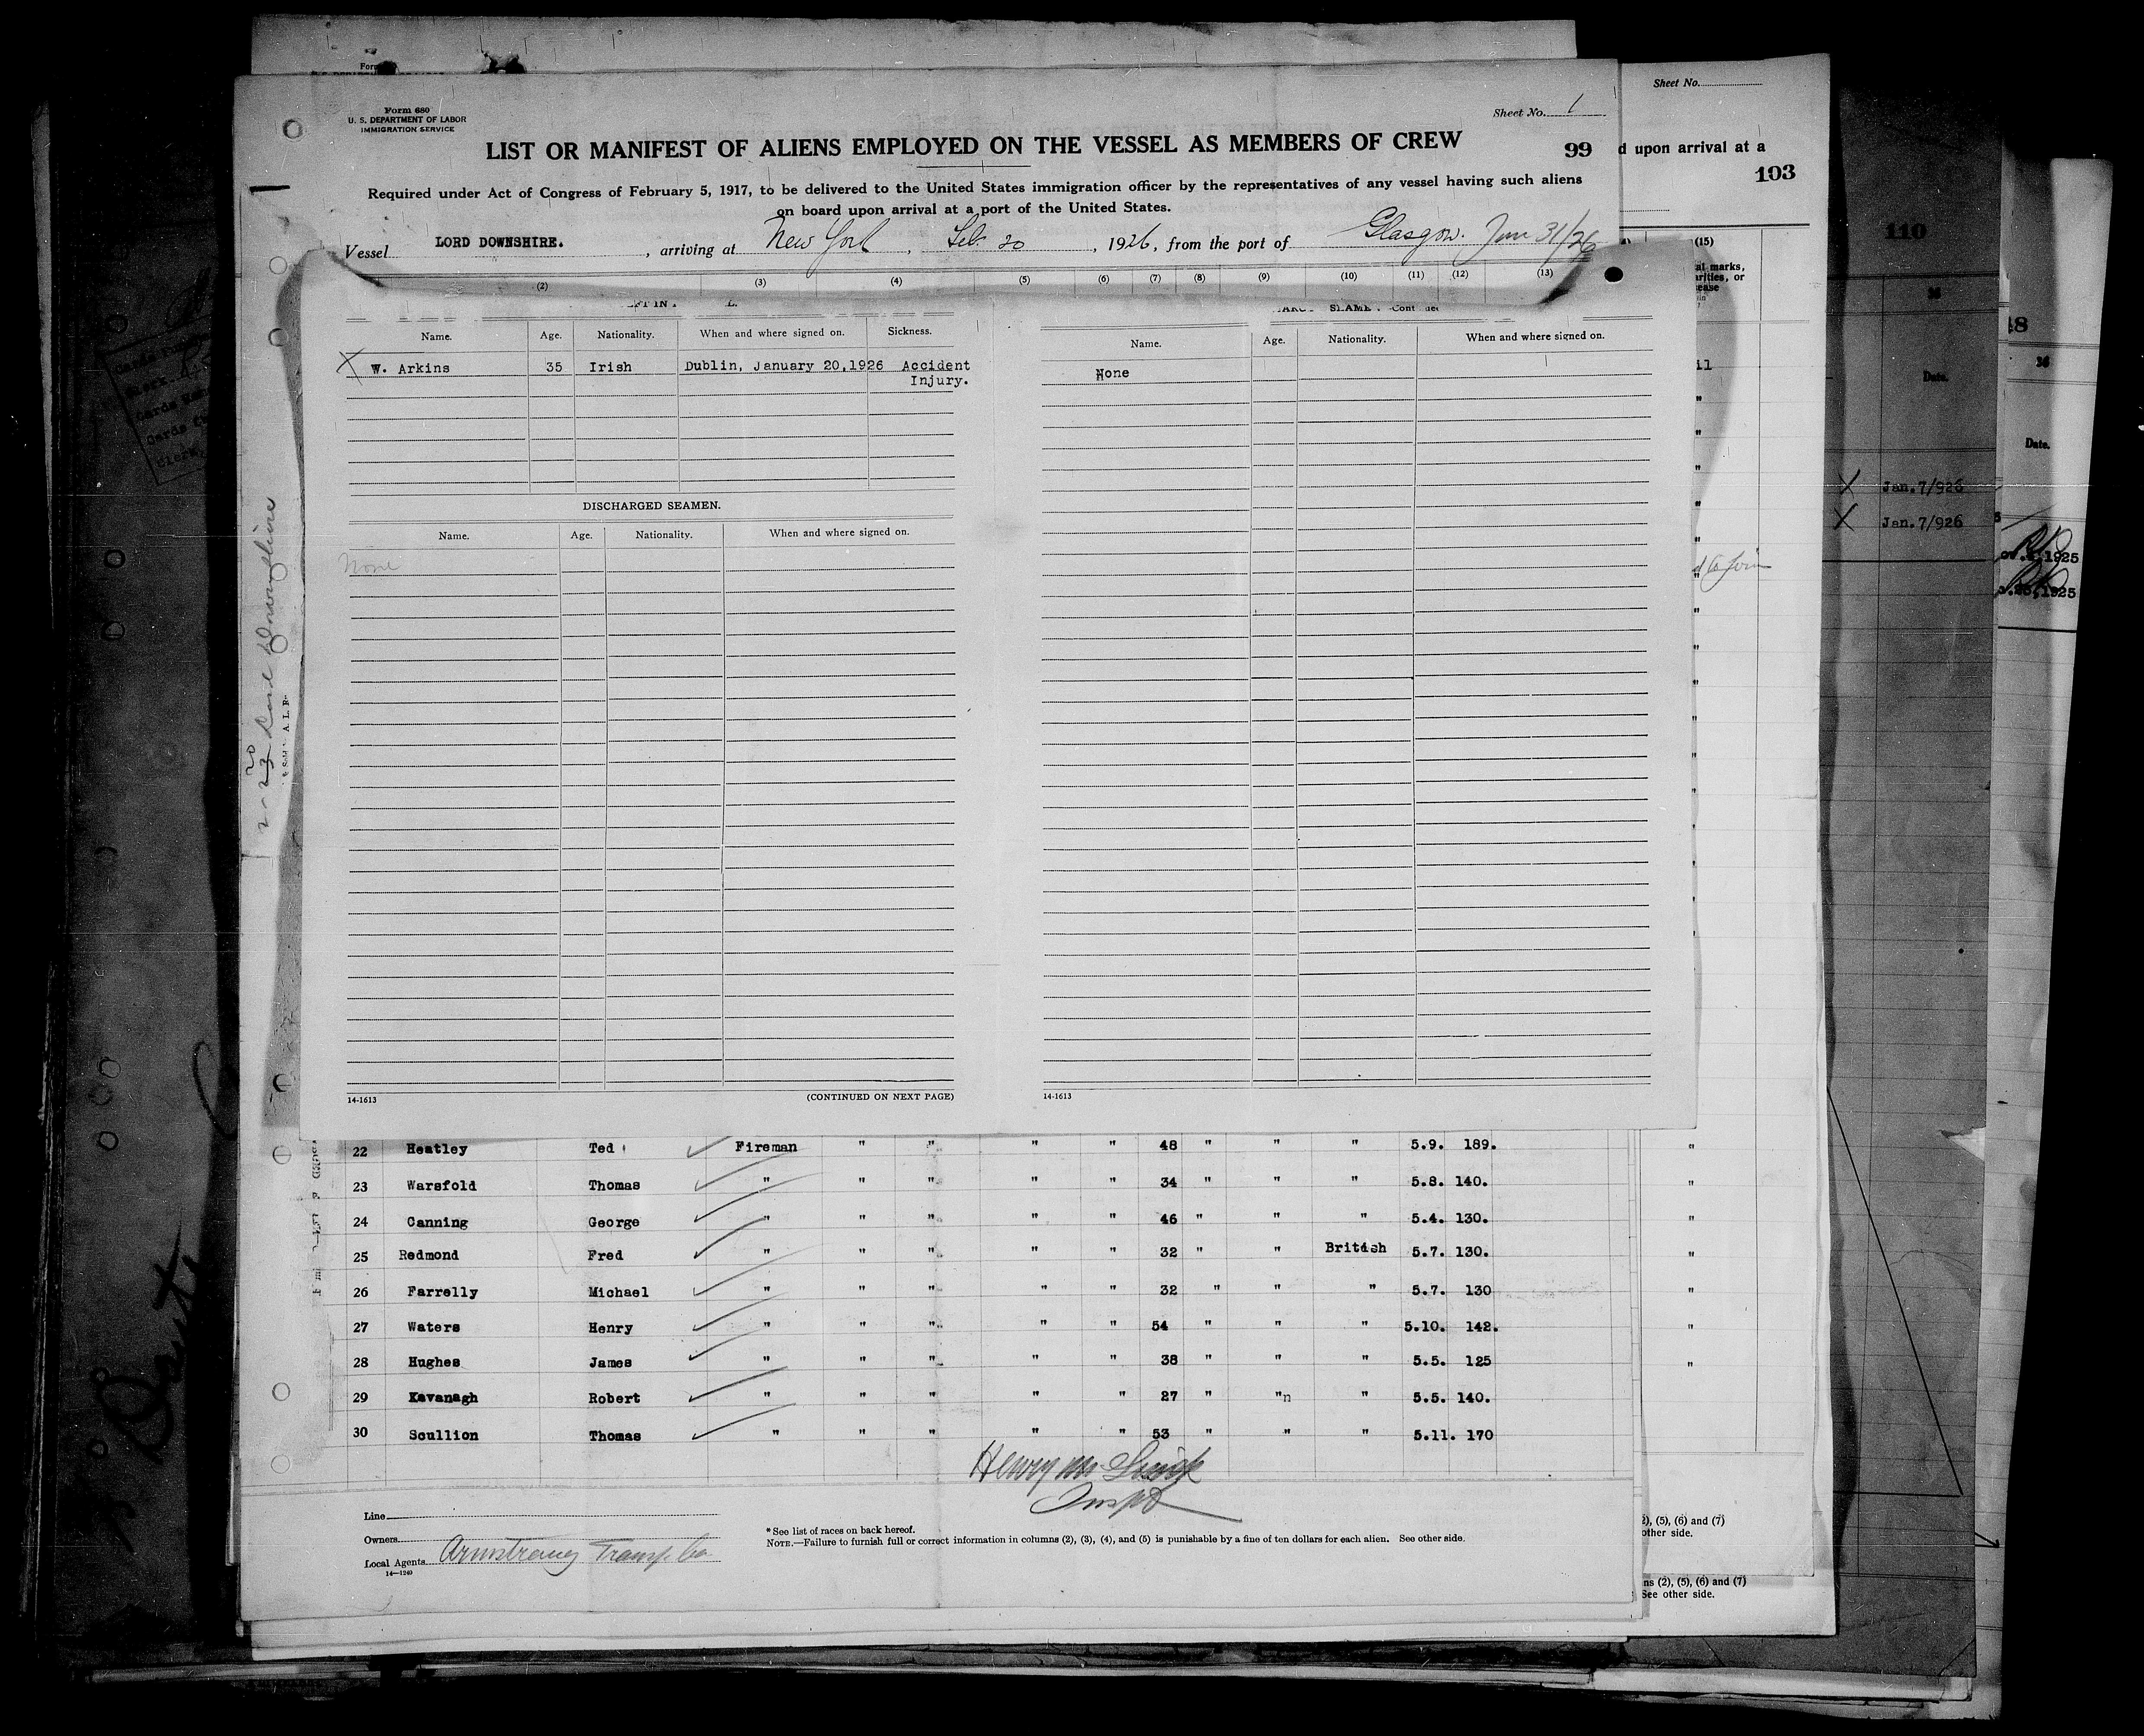 Form 680
U. S. DEPARTMENT OF LABOR
IMMIGRATION SERVICE
Sheet No. 1
Sheet No.
LIST OR MANIFEST OF ALIENS EMPLOYED ON THE VESSEL AS MEMBERS OF CREW
99
d upon arrival at a
103
110
Required under Act of Congress of February 5, 1917, to be delivered to the United States immigration officer by the representatives of any vessel having such aliens
on board upon arrival at a port of the United States.
Vessel LORD DOWNSHIRE. , arriving at New York , Feb 20 , 1926, from the port of Glasgow. Jan 31/26
(2) (3) (4) (5) (6) (7) (8) (9) (10) (11) (12) (13) (15)
al marks,
rities, or
ease
Name. Age. Nationality. When and where signed on. Sickness.
W. Arkins 35 Irish Dublin, January 20,1926 Accident
Injury.
DISCHARGED SEAMEN.
Name. Age. Nationality. When and where signed on.
None
14-1613 (CONTINUED ON NEXT PAGE)
Name. Age. Nationality. When and where signed on.
None
14-1613
36
Date.
X Jan.7/926
X Jan.7/926
18
36
Date.
1925
1925
2-23 20 Lord Downshire
22 Heatley Ted Fireman " " " " 48 " " " 5.9. 189. "
23 Warsfold Thomas " " " " " 34 " " " 5.8. 140. "
24 Canning George " " " " " 46 " " " 5.4. 130. "
25 Redmond Fred " " " " " 32 " " British 5.7. 130. "
26 Farrelly Michael " " " " " 32 " " " 5.7. 130 "
27 Waters Henry " " " " " 54 " " " 5.10. 142. "
28 Hughes James " " " " " 38 " " " 5.5. 125 "
29 Kavanagh Robert " " " " " 27 " "n " 5.5. 140.
30 Scullion Thomas " " " " " 53 " " " 5.11. 170
Henry
Insptr
Line
Owners
Local Agents Armstrong Transp. Co
14—1240
* See list of races on back hereof.
NOTE.—Failure to furnish full or correct information in columns (2), (3), (4), and (5) is punishable by a fine of ten dollars for each alien. See other side.
2), (5), (6) and (7)
other side.
ns (2), (5), (6) and (7)
See other side.